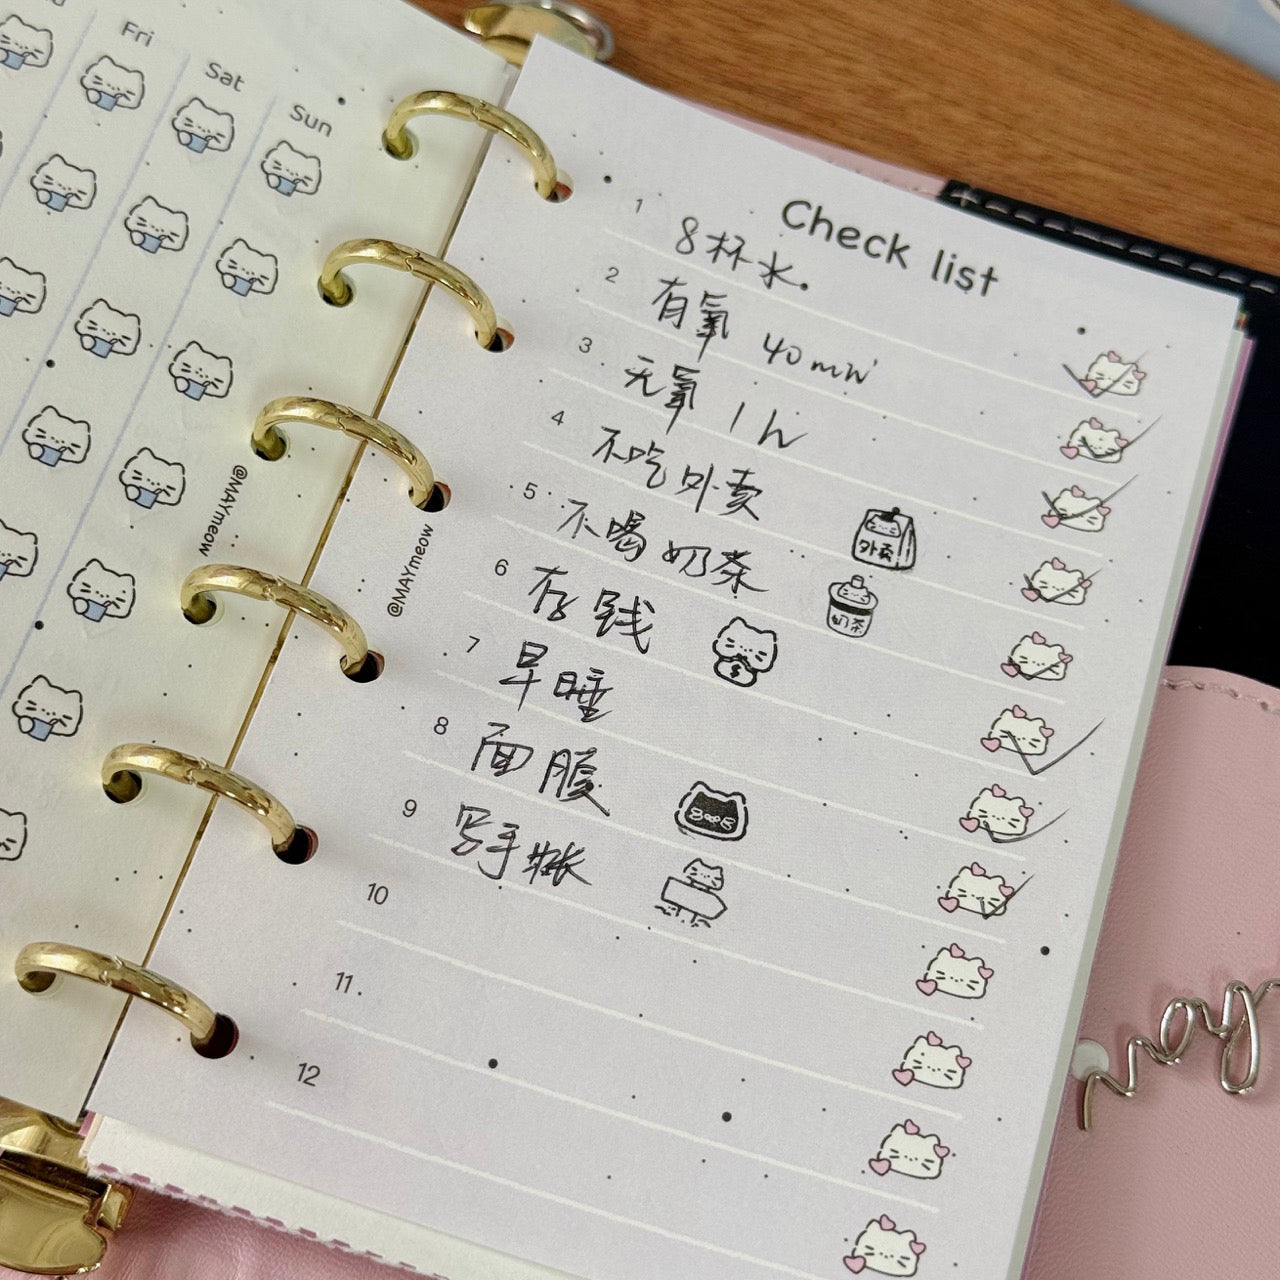 Fri
Sat
Sun
@MAYmeow
@MAYmeow
Check list
1 8杯水.
2 有氧 40min
3 无氧 1h
4 不吃外卖
外卖
5 不喝奶茶
奶茶
6 存钱
$
7 早睡
8 面膜
9 写手账
10
11
12